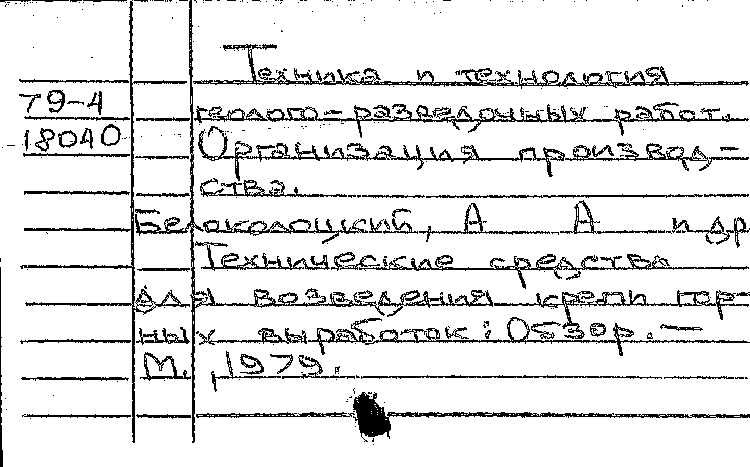 Техника и технология
79-4 геолого-разведочных работ.
18040 Организация производ-
ства.
Белоколоцкий, А А и др
Технические средства
для возведения крепи гор-
ных выработок: Обзор. —
М., 1979.